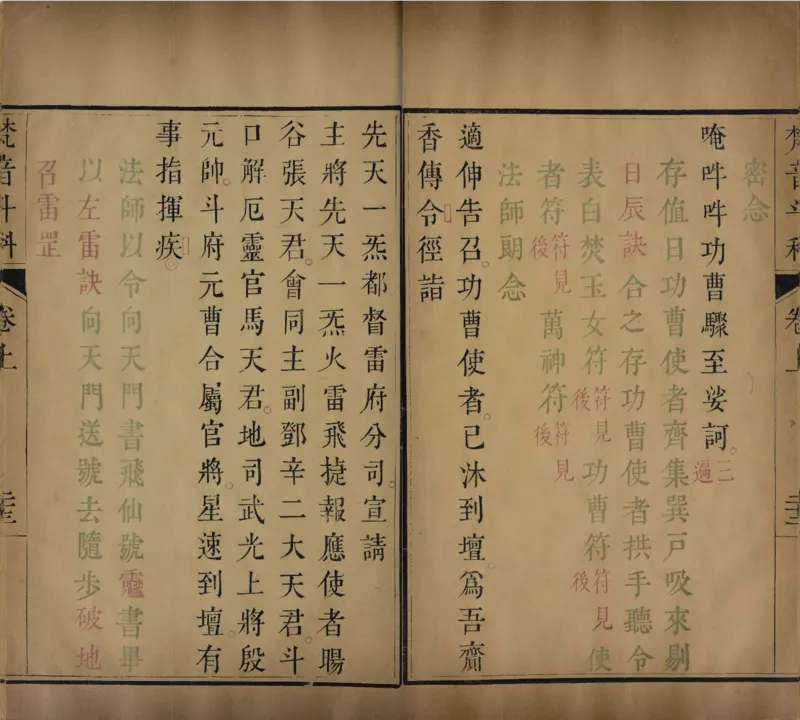 梵音斗科 卷上
密念
唵吽吽功曹驟至娑訶。三遍
存值日功曹使者齊集巽戸吸來剔
日辰訣合之存功曹使者拱手聽令
表白焚玉女符符見後功曹符符見後使
者符符見後萬神符符見後
法師朗念
適伸告召。功曹使者。已沐到壇。爲吾齎
香傳令徑詣
先天一炁都督雷府分司。宣請
主將先天一炁火雷飛捷報應使者暘
谷張天君。會同主副鄧辛二大天君。斗
口解厄靈官馬天君。地司武光上將殷
元帥。斗府元曹合屬官將。星速到壇。有
事指揮疾。
法師以令向天門書飛仙號靈書畢
以左雷訣向天門送號去隨步破地
召雷罡
梵音斗科 卷上